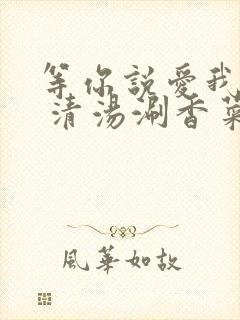 等你說愛我
清湯涮香菜
風華如故